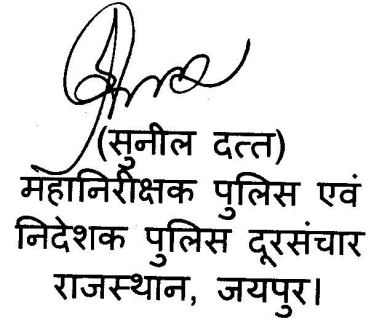 (सुनील दत्त)
महानिरीक्षक पुलिस एवं
निदेशक पुलिस दूरसंचार
राजस्थान, जयपुर।